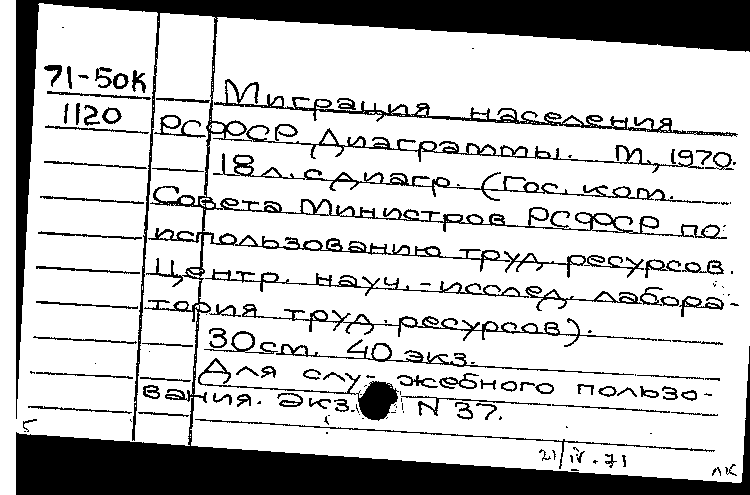 71-50К
1120
Миграция населения
РСФСР. Диаграммы. М., 1970.
18 л. с диагр. (Гос. ком.
Совета Министров РСФСР по
использованию труд. ресурсов.
Центр. науч.-исслед. лабора-
тория труд. ресурсов).
30 см. 40 экз.
Для слу- жебного пользо-
вания. Экз. N 37.
21/IV.71
ЛК